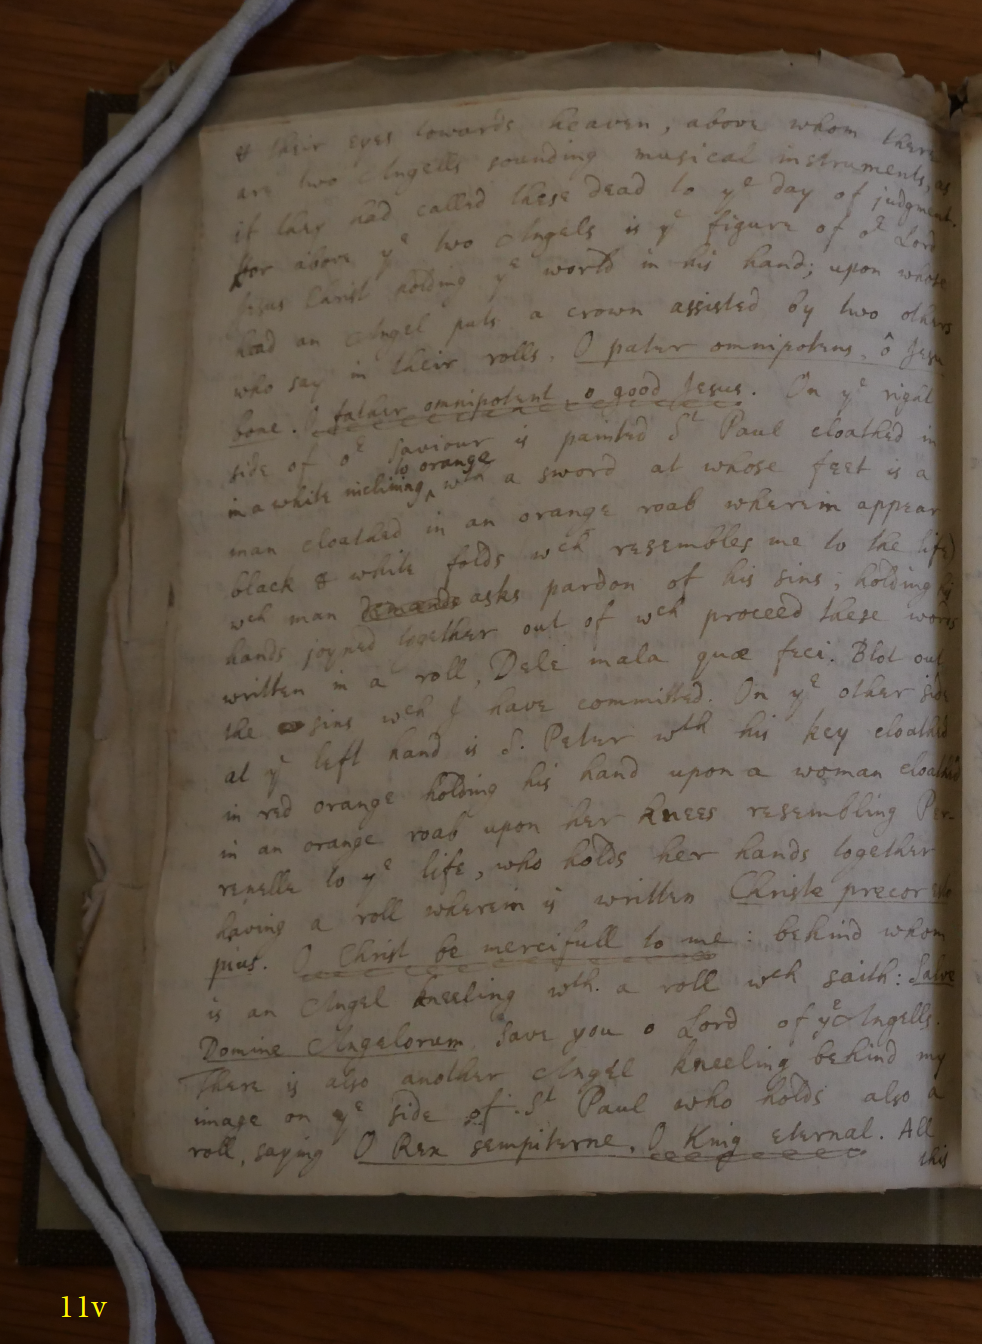 & their eyes towards heaven, above whom there
are two Angells sounding musical instruments, as
if they had called these dead to ye day of judgment.
for above ye two Angels is ye figure of or Lord
Jesus Christ holding ye world in his hand; upon whose
head an Angel puts a crown assisted by two others
who say in their rolls. O pater omnipotens, ô Jesu
bone. O father omnipotent o good Jesus. On ye right
side of or Saviour is painted St Paul cloathed in
in a white inclining to orange wth a sword at whose feet is a
man cloathed in an orange roab wherein appear
black & white folds wch resembles me to the life)
wch man demands asks pardon of his sins; holding his
hands joyned together out of wch proceed these words
written in a roll, Dele mala quæ feci. Blot out
the sins wch I have committed. On ye other side
at ye left hand is S. Peter wth his key cloathed
in red orange holding his hand upon a woman cloathed
in an orange roab upon her knees resembling Per-
renelle to ye life, who holds her hands together
having a roll wherein is written Christe precor esto
pius. O Christ be mercifull to me: behind whom
is an Angel kneeling wth. a roll wch saith: Salve
Domine Angelorum Save you o Lord of ye Angells.
There is also another Angel kneeling behind my
image on ye side of St Paul who holds also a
roll, saying O Rex sempiterne, O Knig eternal. All
this
11v